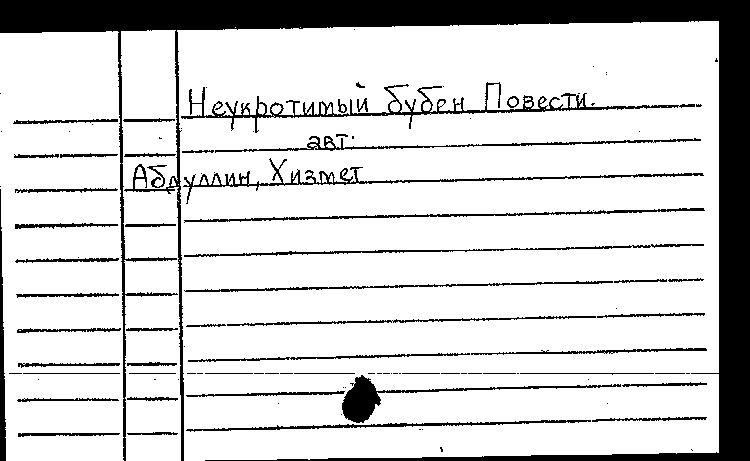 Неукротимый бубен Повести.
авт.
Абдуллин, Хизмет